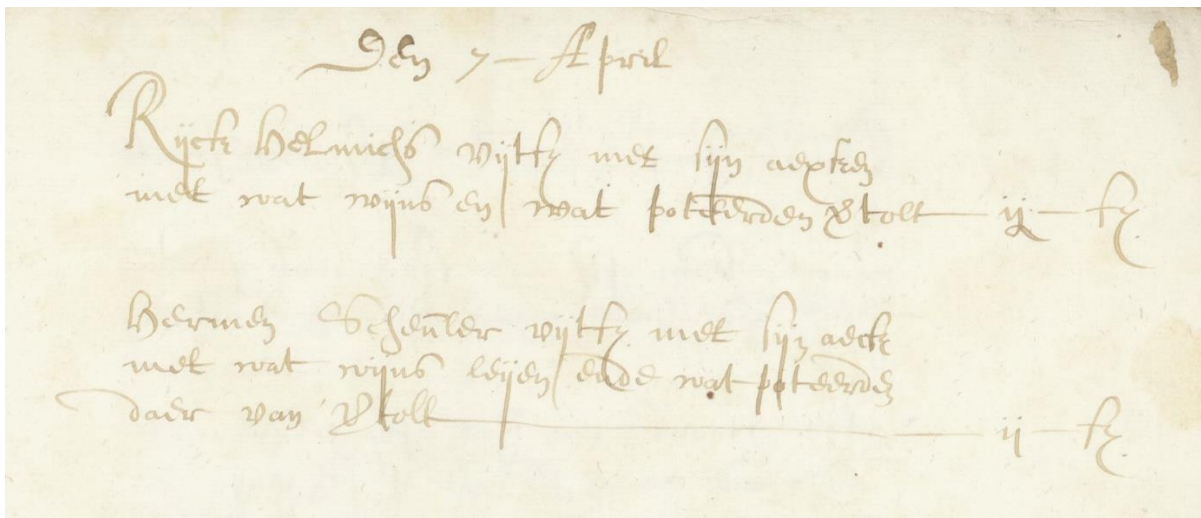 Den 7 April
Rijck Helmichs vijt met sijn aexken
met wat wijns en wat poteerden Vtolt ij
Hermen Scheuler vijt met sijn aeck
met wat wijns leijen ende wat poteerden
daer van Vtolt ij